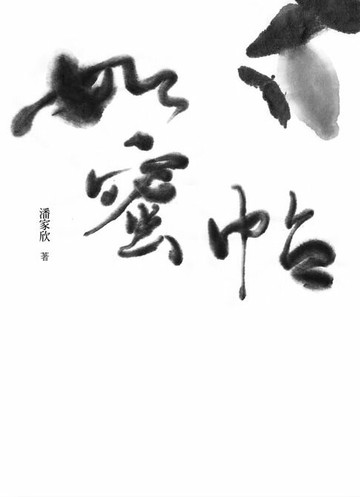 如蜜帖
潘家欣 著